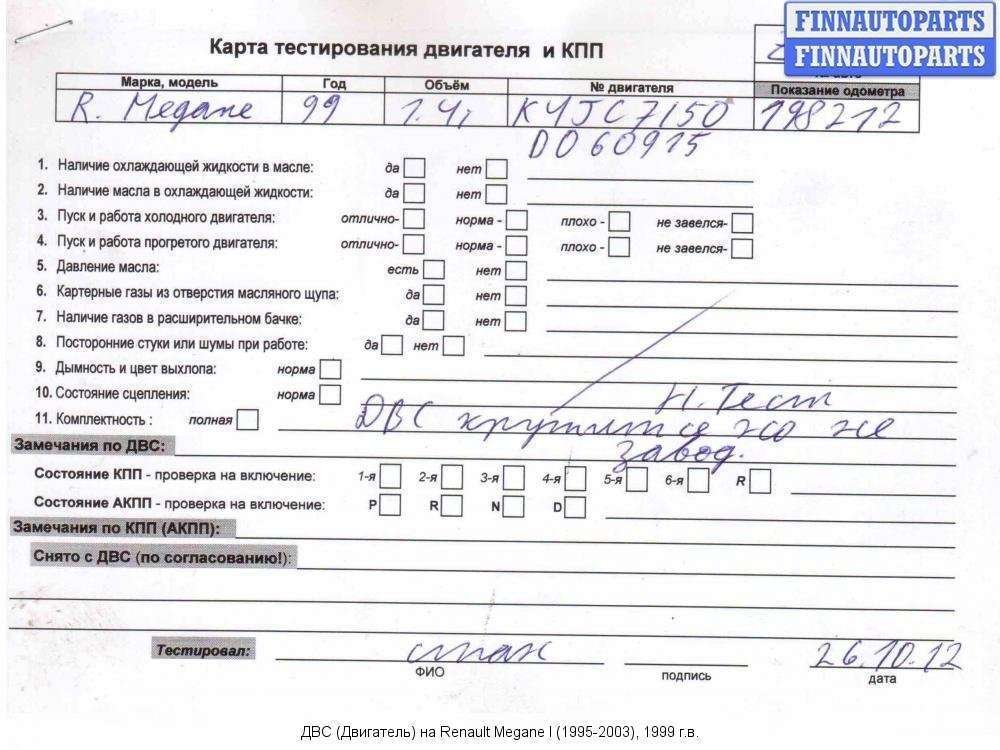 FINNAUTOPARTS
FINNAUTOPARTS
Карта тестирования двигателя и КПП
Марка, модель Год Объём № двигателя Показание одометра
R. Megane 99 1.4i K4JC7150 198212
D060915
1. Наличие охлаждающей жидкости в масле: да нет
2. Наличие масла в охлаждающей жидкости: да нет
3. Пуск и работа холодного двигателя: отлично- норма - плохо - не завелся-
4. Пуск и работа прогретого двигателя: отлично- норма - плохо - не завелся-
5. Давление масла: есть нет
6. Картерные газы из отверстия масляного щупа: да нет
7. Наличие газов в расширительном бачке: да нет
8. Посторонние стуки или шумы при работе: да нет
9. Дымность и цвет выхлопа: норма
10. Состояние сцепления: норма Н. Тест
11. Комплектность : полная ДВС крутится но не
Замечания по ДВС: завод.
Состояние КПП - проверка на включение: 1-я 2-я 3-я 4-я 5-я 6-я R
Состояние АКПП - проверка на включение: P R N D
Замечания по КПП (АКПП):
Снято с ДВС (по согласованию!):
Тестировал: 26.10.12
ФИО подпись дата
ДВС (Двигатель) на Renault Megane I (1995-2003), 1999 г.в.